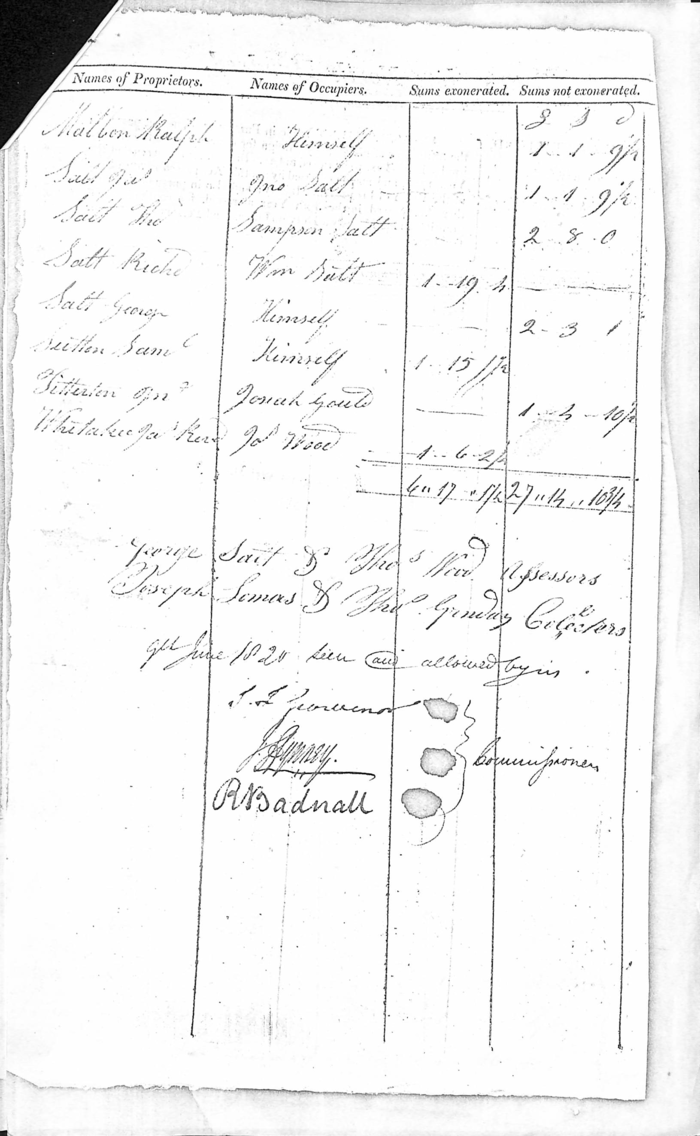 Names of Proprietors. Names of Occupiers. Sums exonerated. Sums not exonerated.
£ S d
Malbon Ralph Himself 1 - 1 - 9½
Salt Jas Jno Salt 1 - 1 - 9½
Salt Tho Sampson Salt 2 8 0
Salt Richd Wm Salt 1 - 19 4
Salt George Himself 2 - 3 1
Saml Himself 1 15 7½
Titterton Jno Josiah Gould 1 - 4 - 10½
Whitaker Jas Revd Jos Wood 1 - 6 - 2½
6 " 17 " 1½ 27 " 14 " 10¾
George Salt & Thos Wood Assessors
Joseph Lomas & Thos Collectors
9th June 1820 seen and allowed by us
Commissioners
R Badnall